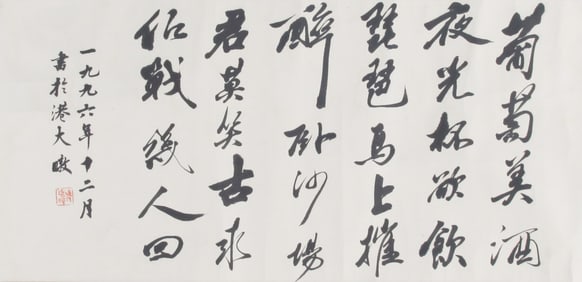 葡萄美酒
夜光杯欲飲
琵琶馬上摧
醉卧沙場
君莫笑古來
征戰幾人回
一九九六年十二月
書於港大